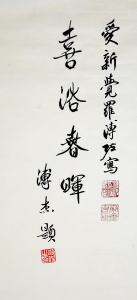 愛新覺羅溥佐寫
喜浴春暉
溥杰題